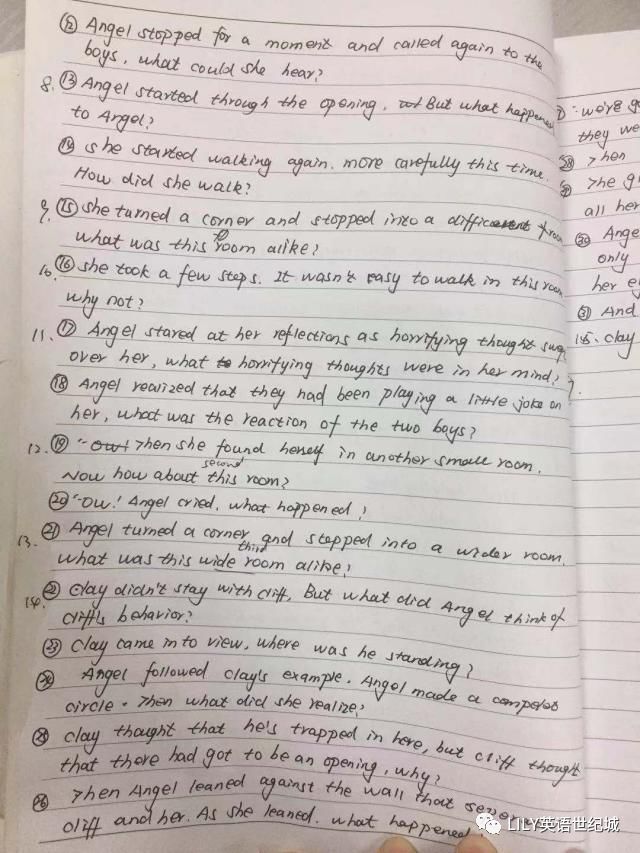 ⑫ Angel stopped for a moment and called again to the
boys, what could she hear?
8. ⑬ Angel started through the opening, But what happened
to Angel?
⑭ she started walking again. more carefully this time.
How did she walk?
9. ⑮ she turned a corner and stopped into a different room
what was this room alike?
10. ⑯ she took a few steps. It wasn't easy to walk in this room
why not?
11. ⑰ Angel stared at her reflections as horrifying thought
over her, what horrifying thoughts were in her mind?
⑱ Angel realized that they had been playing a little joke on
her, what was the reaction of the two boys?
12. ⑲ Then she found herself in another small room.
Now how about this second room?
⑳ "Ow! Angel cried. what happened!
13. ㉑ Angel turned a corner and stepped into a wider room.
what was this wide third room alike?
14. ㉒ Clay didn't stay with cliff, But what did Angel think of
cliff's behavior?
㉓ Clay came in to view, where was he standing?
㉔ Angel followed clay's example. Angel made a
circle. Then what did she realize?
㉕ Clay thought that he's trapped in here, but cliff thought
that there had got to be an opening, why?
㉖ Then Angel leaned against the wall that
cliff and her. As she leaned. what happened!
: we're
they we
㉘ Then
The
all her
㉚ Ange
only
her
㉛ And
15. clay
LILY英语世纪城